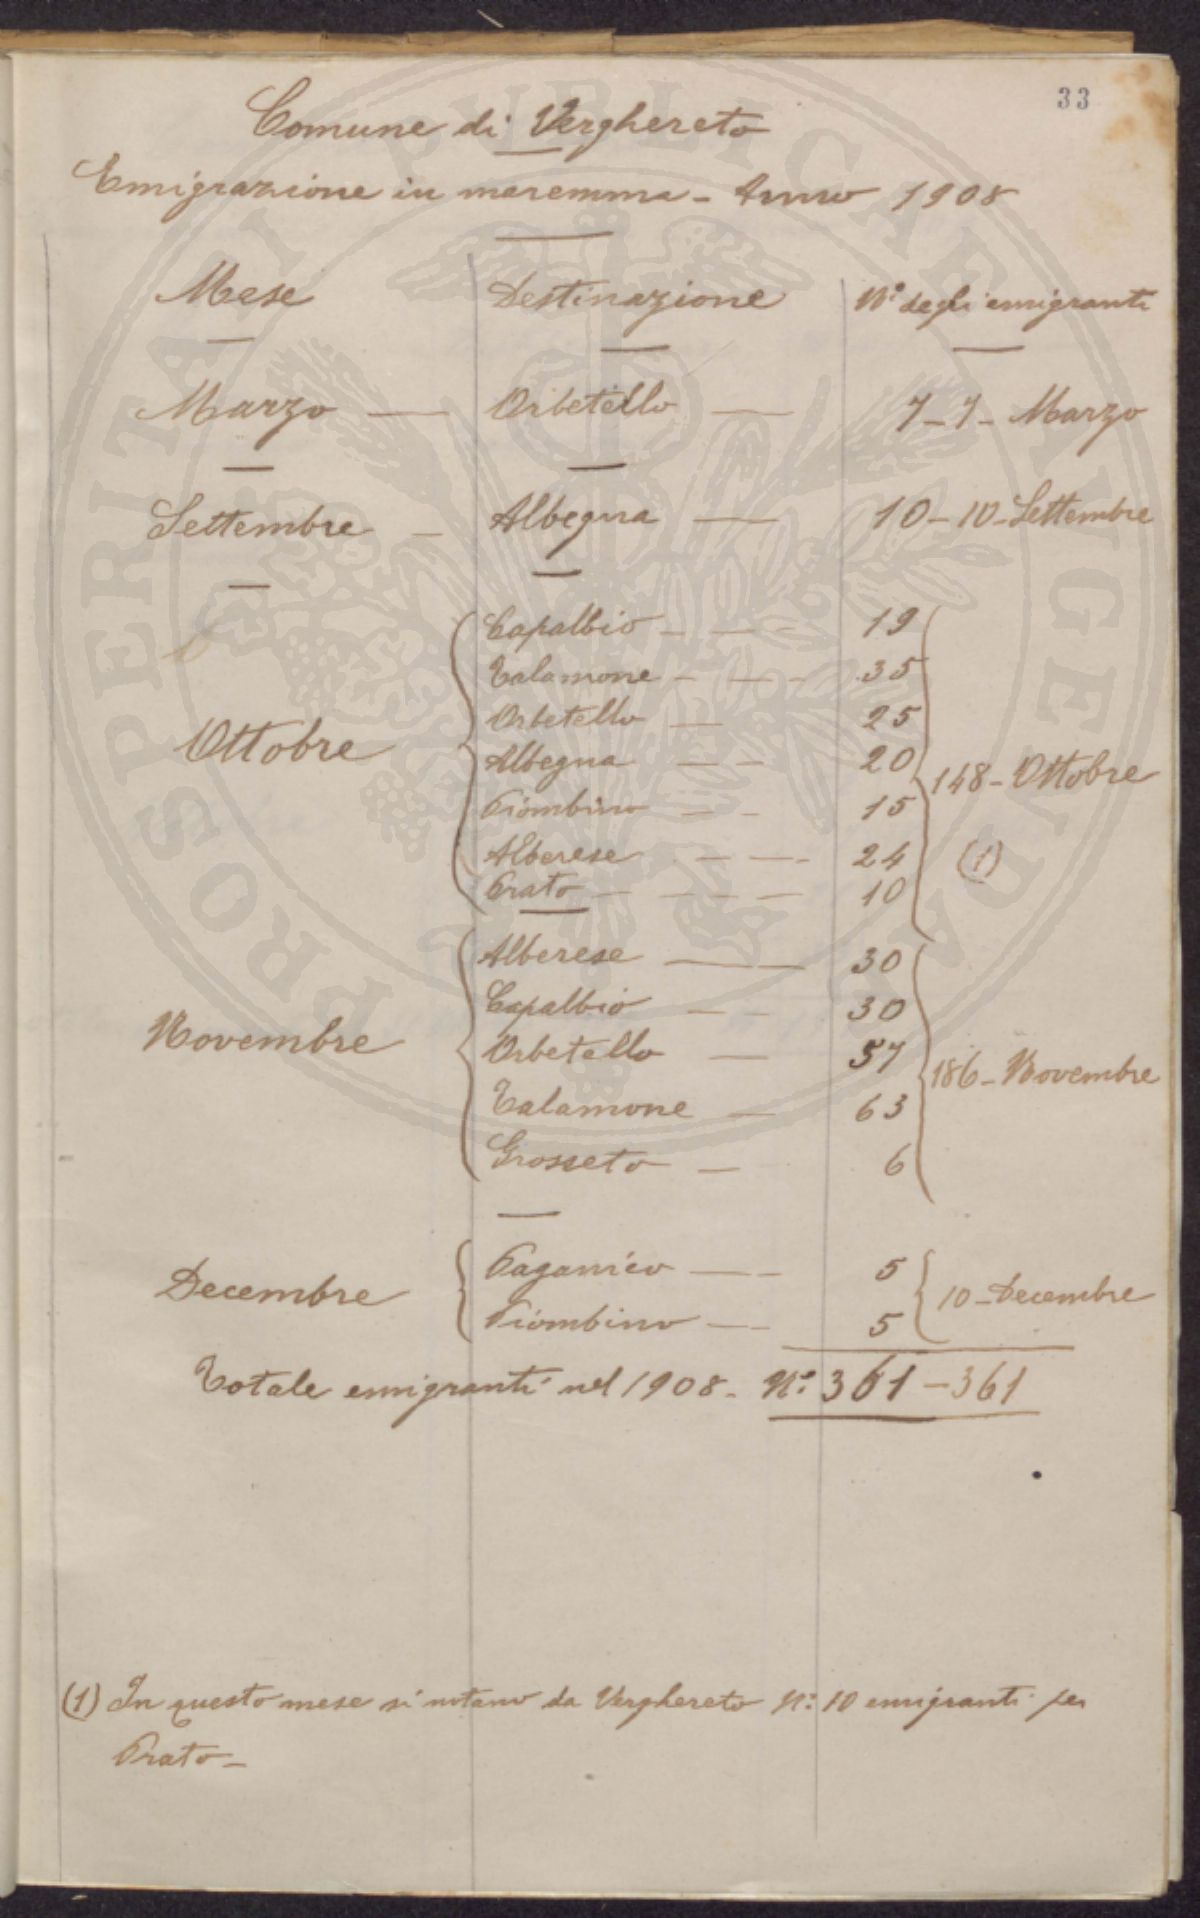 33
Comune di Verghereto
Emigrazione in maremma - Anno 1908
Mese Destinazione N.º degli emigranti
Marzo — Orbetello — 7 - 7 - Marzo
Settembre — Albegna — 10 - 10 - Settembre
Capalbio — — — 19
Talamone — — — 35
Orbetello — 25
Ottobre Albegna — — 20
148 - Ottobre
Piombino — — 15
Alberese — — 24 (1)
Prato — — — — 10
Alberese — 30
Capalbio — — 30
Novembre Orbetello — 57
186 - Novembre
Talamone — 63
Grosseto — 6
Paganico — 5
Decembre 10 - Decembre
Piombino — 5
Totale emigranti nel 1908 - N.º 361 - 361
(1) In questo mese si notano da Verghereto N.º 10 emigranti per
Prato -
PROSPERITATI PUBLICAE AUGENDAE